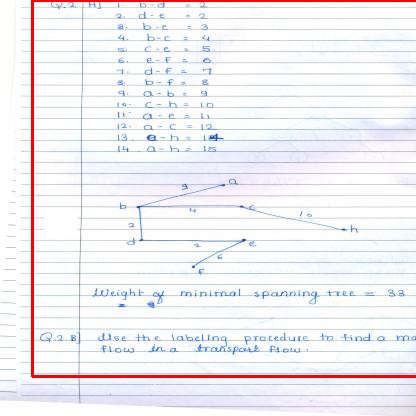 Q.2 A] 1. b-d = 2
2. d-e = 2
3. b-e = 3
4. b-c = 4
5. c-e = 5
6. e-f = 6
7. d-f = 7
8. b-f = 8
9. a-b = 9
10. c-h = 10
11. a-e = 11
12. a-c = 12
13. e-h =
14. a-h = 15
9 a
b 4 c 10 h
2
d 2 e
6
f
Weight of minimal spanning tree = 33
=
Q.2 B] Use the labeling procedure to find a ma
flow in a transport flow.